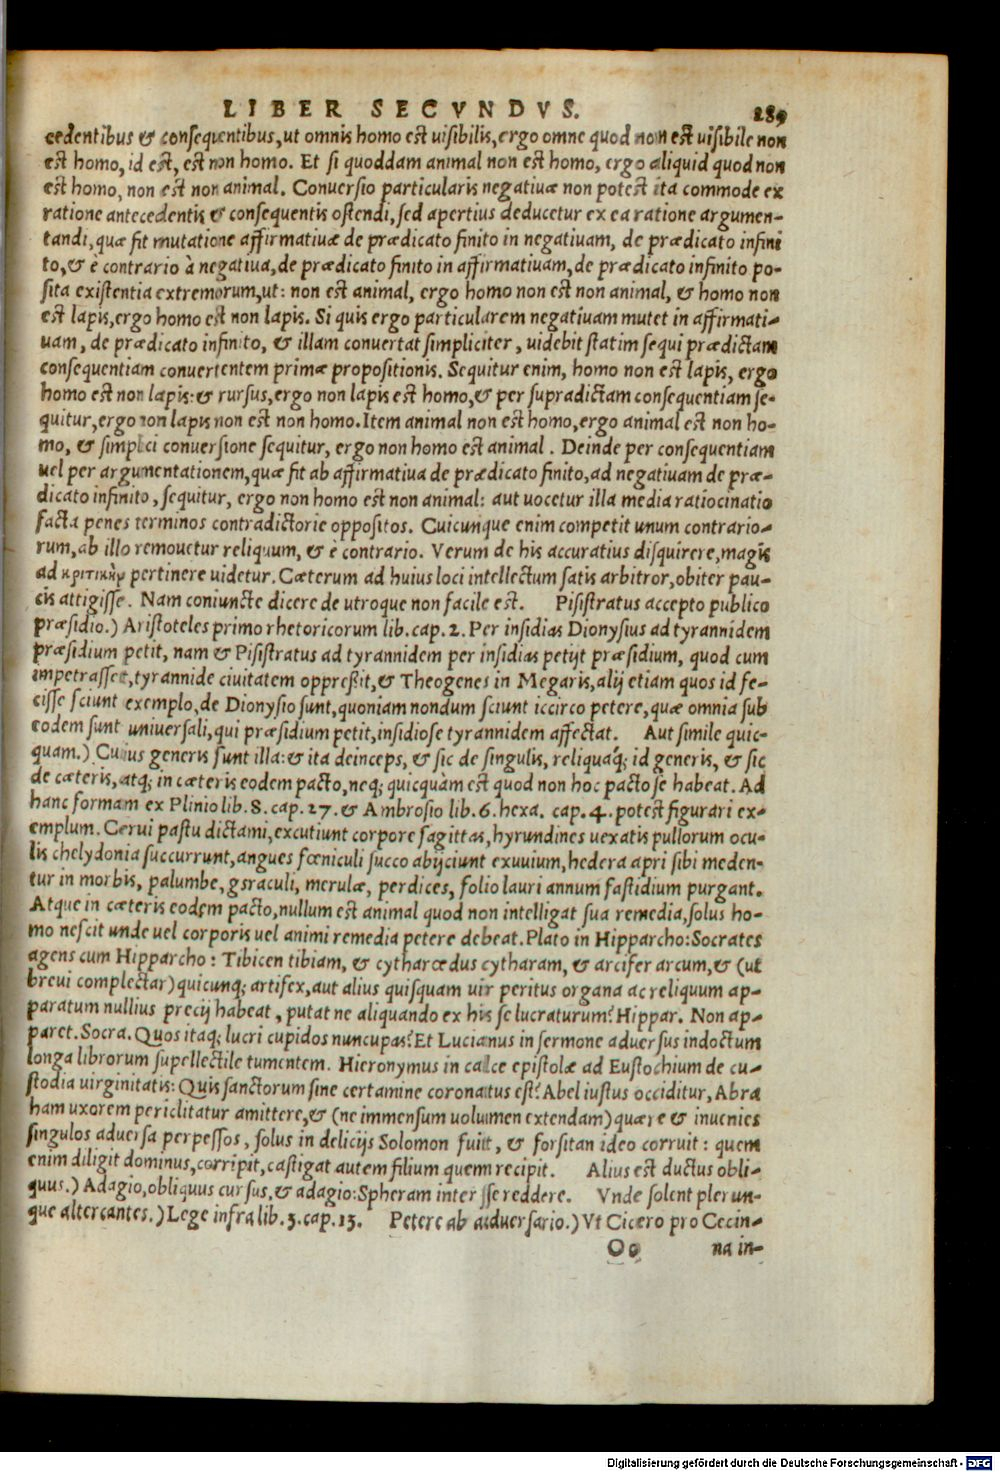 LIBER SECVNDVS. 289
cedentibus & consequentibus, ut omnis homo est uisibilis, ergo omne quod non est uisibile non
est homo, id est, est non homo. Et si quoddam animal non est homo, ergo aliquid quod non
est homo, non est non animal. Conuersio particularis negatiuæ non potest ita commode ex
ratione antecedentis & consequentis ostendi, sed apertius deducetur ex ea ratione argumen-
tandi, quæ fit mutatione affirmatiuæ de prædicato finito in negatiuam, de prædicato infini
to, & è contrario à negatiua, de prædicato finito in affirmatiuam, de prædicato infinito po-
sita existentia extremorum, ut: non est animal, ergo homo non est non animal, & homo non
est lapis, ergo homo est non lapis. Si quis ergo particularem negatiuam mutet in affirmati-
uam, de prædicato infinito, & illam conuertat simpliciter, uidebit statim sequi prædictam
consequentiam conuertentem primæ propositionis. Sequitur enim, homo non est lapis, ergo
homo est non lapis: & rursus, ergo non lapis est homo, & per supradictam consequentiam se-
quitur, ergo non lapis non est non homo. Item animal non est homo, ergo animal est non ho-
mo, & simplici conuersione sequitur, ergo non homo est animal. Deinde per consequentiam
uel per argumentationem, quæ fit ab affirmatiua de prædicato finito, ad negatiuam de præ-
dicato infinito, sequitur, ergo non homo est non animal: aut uocetur illa media ratiocinatio
facta penes terminos contradictorie oppositos. Cuicunque enim competit unum contrario-
rum, ab illo remouetur reliquum, & è contrario. Verum de his accuratius disquirere, magis
ad κριτικὴν pertinere uidetur. Cæterum ad huius loci intellectum satis arbitror, obiter pau-
cis attigisse. Nam coniuncte dicere de utroque non facile est. Pisistratus accepto publico
præsidio.) Aristoteles primo rhetoricorum lib. cap. 2. Per insidias Dionysius ad tyrannidem
præsidium petit, nam & Pisistratus ad tyrannidem per insidias petijt præsidium, quod cum
impetrasset, tyrannide ciuitatem oppreßit, & Theogenes in Megaris, alij etiam quos id fe-
cisse sciunt exemplo, de Dionysio sunt, quoniam nondum sciunt iccirco petere, quæ omnia sub
eodem sunt uniuersali, qui præsidium petit, insidiose tyrannidem affectat. Aut simile quic-
quam.) Cuius generis sunt illa: & ita deinceps, & sic de singulis, reliquaq́; id generis, & sic
de cæteris, atq; in cæteris eodem pacto, neq; quicquàm est quod non hoc pacto se habeat. Ad
hanc formam ex Plinio lib. 8. cap. 27. & Ambrosio lib. 6. hexa. cap. 4. potest figurari ex-
emplum. Cerui pastu dictami, excutiunt corpore sagittas, hyrundines uexatis pullorum ocu-
lis chelydonia succurrunt, angues fœniculi succo abijciunt exuuium, hedera apri sibi meden-
tur in morbis, palumbe, gsraculi, merulæ, perdices, folio lauri annum fastidium purgant.
Atque in cæteris eodem pacto, nullum est animal quod non intelligat sua remedia, solus ho-
mo nescit unde uel corporis uel animi remedia petere debeat. Plato in Hipparcho: Socrates
agens cum Hipparcho: Tibicen tibiam, & cytharœdus cytharam, & arcifer arcum, & (ut
breui complectar) quicunq; artifex, aut alius quisquam uir peritus organa ac reliquum ap-
paratum nullius precij habeat, putat ne aliquando ex his se lucraturum? Hippar. Non ap-
paret. Socra. Quos itaq; lucri cupidos nuncupas? Et Lucianus in sermone aduersus indoctum
longa librorum supellectile tumentem. Hieronymus in calce epistolæ ad Eustochium de cu-
stodia uirginitatis: Quis sanctorum sine certamine coronatus est? Abel iustus occiditur, Abra
ham uxorem periclitatur amittere, & (ne immensum uolumen extendam) quære & inuenies
singulos aduersa perpessos, solus in delicijs Solomon fuit, & forsitan ideo corruit: quem
enim diligit dominus, corripit, castigat autem filium quem recipit. Alius est ductus obli-
quus.) Adagio, obliquus cursus, & adagio: Spheram inter se reddere. Vnde solent plerun-
que altercantes.) Lege infra lib. 3. cap. 13. Petere ab aduersario.) Vt Cicero pro Cecin-
Oo na in-
Digitalisierung gefördert durch die Deutsche Forschungsgemeinschaft - DFG